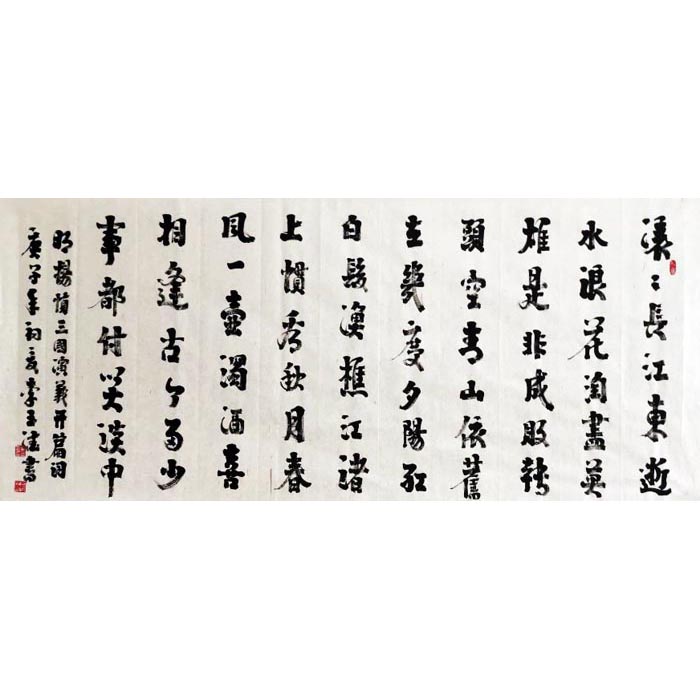 滚〻長江東逝
水浪花淘盡英
雄是非成敗轉
頭空青山依舊
在幾度夕陽紅
白髮漁樵江渚
上慣看秋月春
風一壺濁酒喜
相逢古今多少
事都付笑談中
明楊慎三國演義開篇詞
庚子年初夏李玉淮書